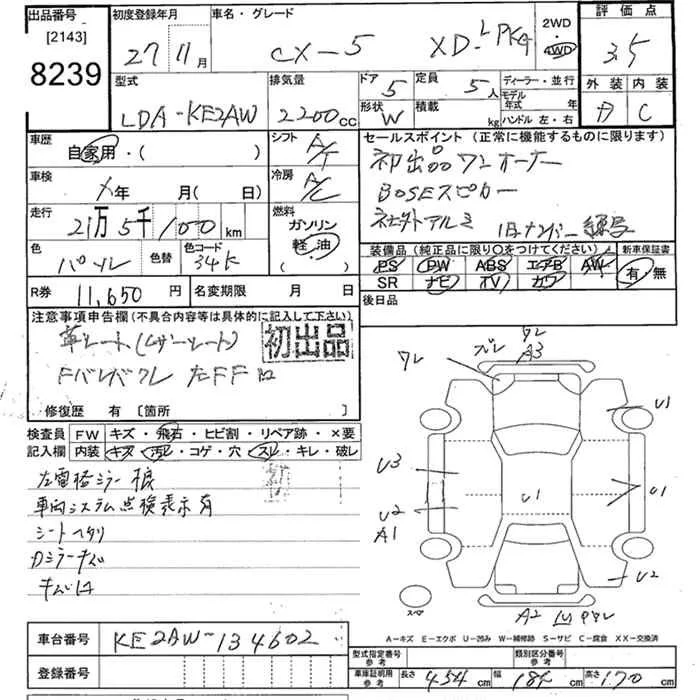 出品番号
[2143]
8239
初度登録年月
27 11月
車名・グレード
CX-5 XD-L PKG
2WD
4WD
評価点
3.5
外装 内装
A C
型式
LDA-KE2AW
排気量
2200cc
ドア 5
形状 W
定員 5人
積載 kg
ディーラー・並行
モデル年式 年
ハンドル 左・右
車歴
自家用・( )
車検
×年 月(日)
走行
21万5千100km
色
パール
色替
色コード
34K
シフト
A/T
冷房
A/C
燃料
ガソリン
軽・油
( ・ )
セールスポイント (正常に機能するものに限ります)
初出品ワンオーナー
BOSEスピカー
社外アルミ 旧ナンバー
装備品 (純正品に限り〇をつけてください)
PS PW ABS エアB AW
SR ナビ TV カワ
新車保証書
有・無
R券 11,650円
名変期限 月 日
後日品
注意事項申告欄 (不具合内容等は具体的に記入して下さい)
革シート(レザーシート)
初出品
修復歴 有 [箇所 ]
検査員記入欄
FW キズ・飛石・ヒビ割・リペア跡・×要
内装 キズ・汚レ・コゲ・穴・スレ・キレ・破レ
左電格ミラー
車両システム点検表示有
シートヘタリ
Dミラーキズ
ワレ
ズレ
ワレ
A3
U1
U3
U2
A1
U1
U1
U2
A2
スペア
A-キズ E-エクボ U-凹み W-補修跡 S-サビ C-腐食 XX-交換済
車台番号
KE2AW-134602
登録番号
型式指定番号 参考
類別区分番号 参考
車庫証明用 参考
長さ 454cm 幅 184cm 高さ 170cm